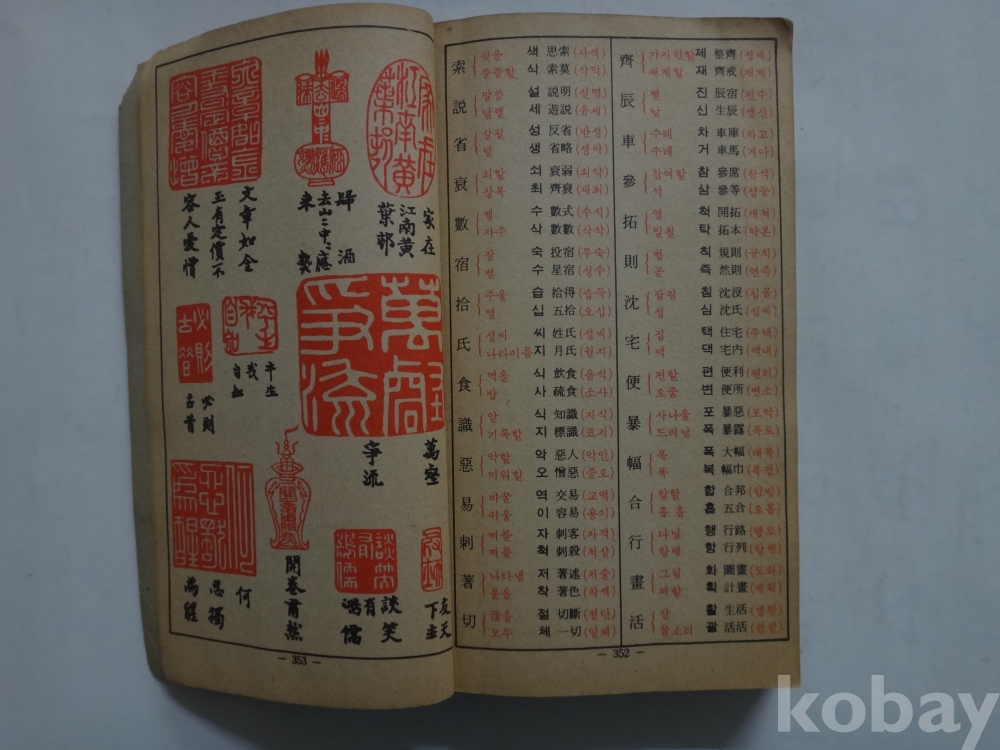 索 찾을 색 思索(사색)
쓸쓸할 삭 索莫(삭막)
説 말씀 설 説明(설명)
달랠 세 遊説(유세)
省 살필 성 反省(반성)
덜 생 省略(생략)
衰 쇠할 쇠 衰弱(쇠약)
상복 최 齊衰(재최)
數 셀 수 數式(수식)
자주 삭 數數(삭삭)
宿 잘 숙 投宿(투숙)
별 수 星宿(성수)
拾 주울 습 拾得(습득)
열 십 五拾(오십)
氏 성씨 씨 姓氏(성씨)
나라이름 지 月氏(월지)
食 먹을 식 飮食(음식)
밥 사 疏食(소사)
識 알 식 知識(지식)
기록할 지 標識(표지)
惡 악할 악 惡人(악인)
미워할 오 憎惡(증오)
易 바꿀 역 交易(교역)
쉬울 이 容易(용이)
刺 찌를 자 刺客(자객)
찌를 척 刺殺(척살)
著 나타낼 저 著述(저술)
붙을 착 著色(착색)
切 끊을 절 切斷(절단)
모두 체 一切(일체)
齊 가지런할 제 整齊(정제)
재계할 재 齊戒(재계)
辰 별 진 辰宿(진수)
날 신 生辰(생신)
車 수레 차 車庫(차고)
수레 거 車馬(거마)
參 참여할 참 參席(참석)
석 삼 參等(삼등)
拓 열 척 開拓(개척)
밀칠 탁 拓本(탁본)
則 법 칙 規則(규칙)
곧 즉 然則(연즉)
沈 잠길 침 沈沒(침몰)
성 심 沈氏(심씨)
宅 집 택 住宅(주택)
댁 댁 宅内(댁내)
便 편할 편 便利(편리)
오줌 변 便所(변소)
暴 사나울 포 暴惡(포악)
드러날 폭 暴露(폭로)
幅 폭 폭 大幅(대폭)
폭 복 幅巾(복건)
合 합할 합 合邦(합방)
홉 홉 五合(오홉)
行 다닐 행 行路(행로)
항렬 항 行列(항렬)
畫 그림 화 圖畫(도화)
꾀할 획 計畫(계획)
活 살 활 生活(생활)
물소리 괄 活活(괄괄)
— 352 —
家在
江南黃
葉邨
歸
去山中
酒應
來
文章如金
玉有定價不
容人愛憎
萬壑
爭流
平生
我
自知
必則
古昔
開卷肅然
談笑
有
鴻儒
何
思獨
爲醒
— 353 —
kobay